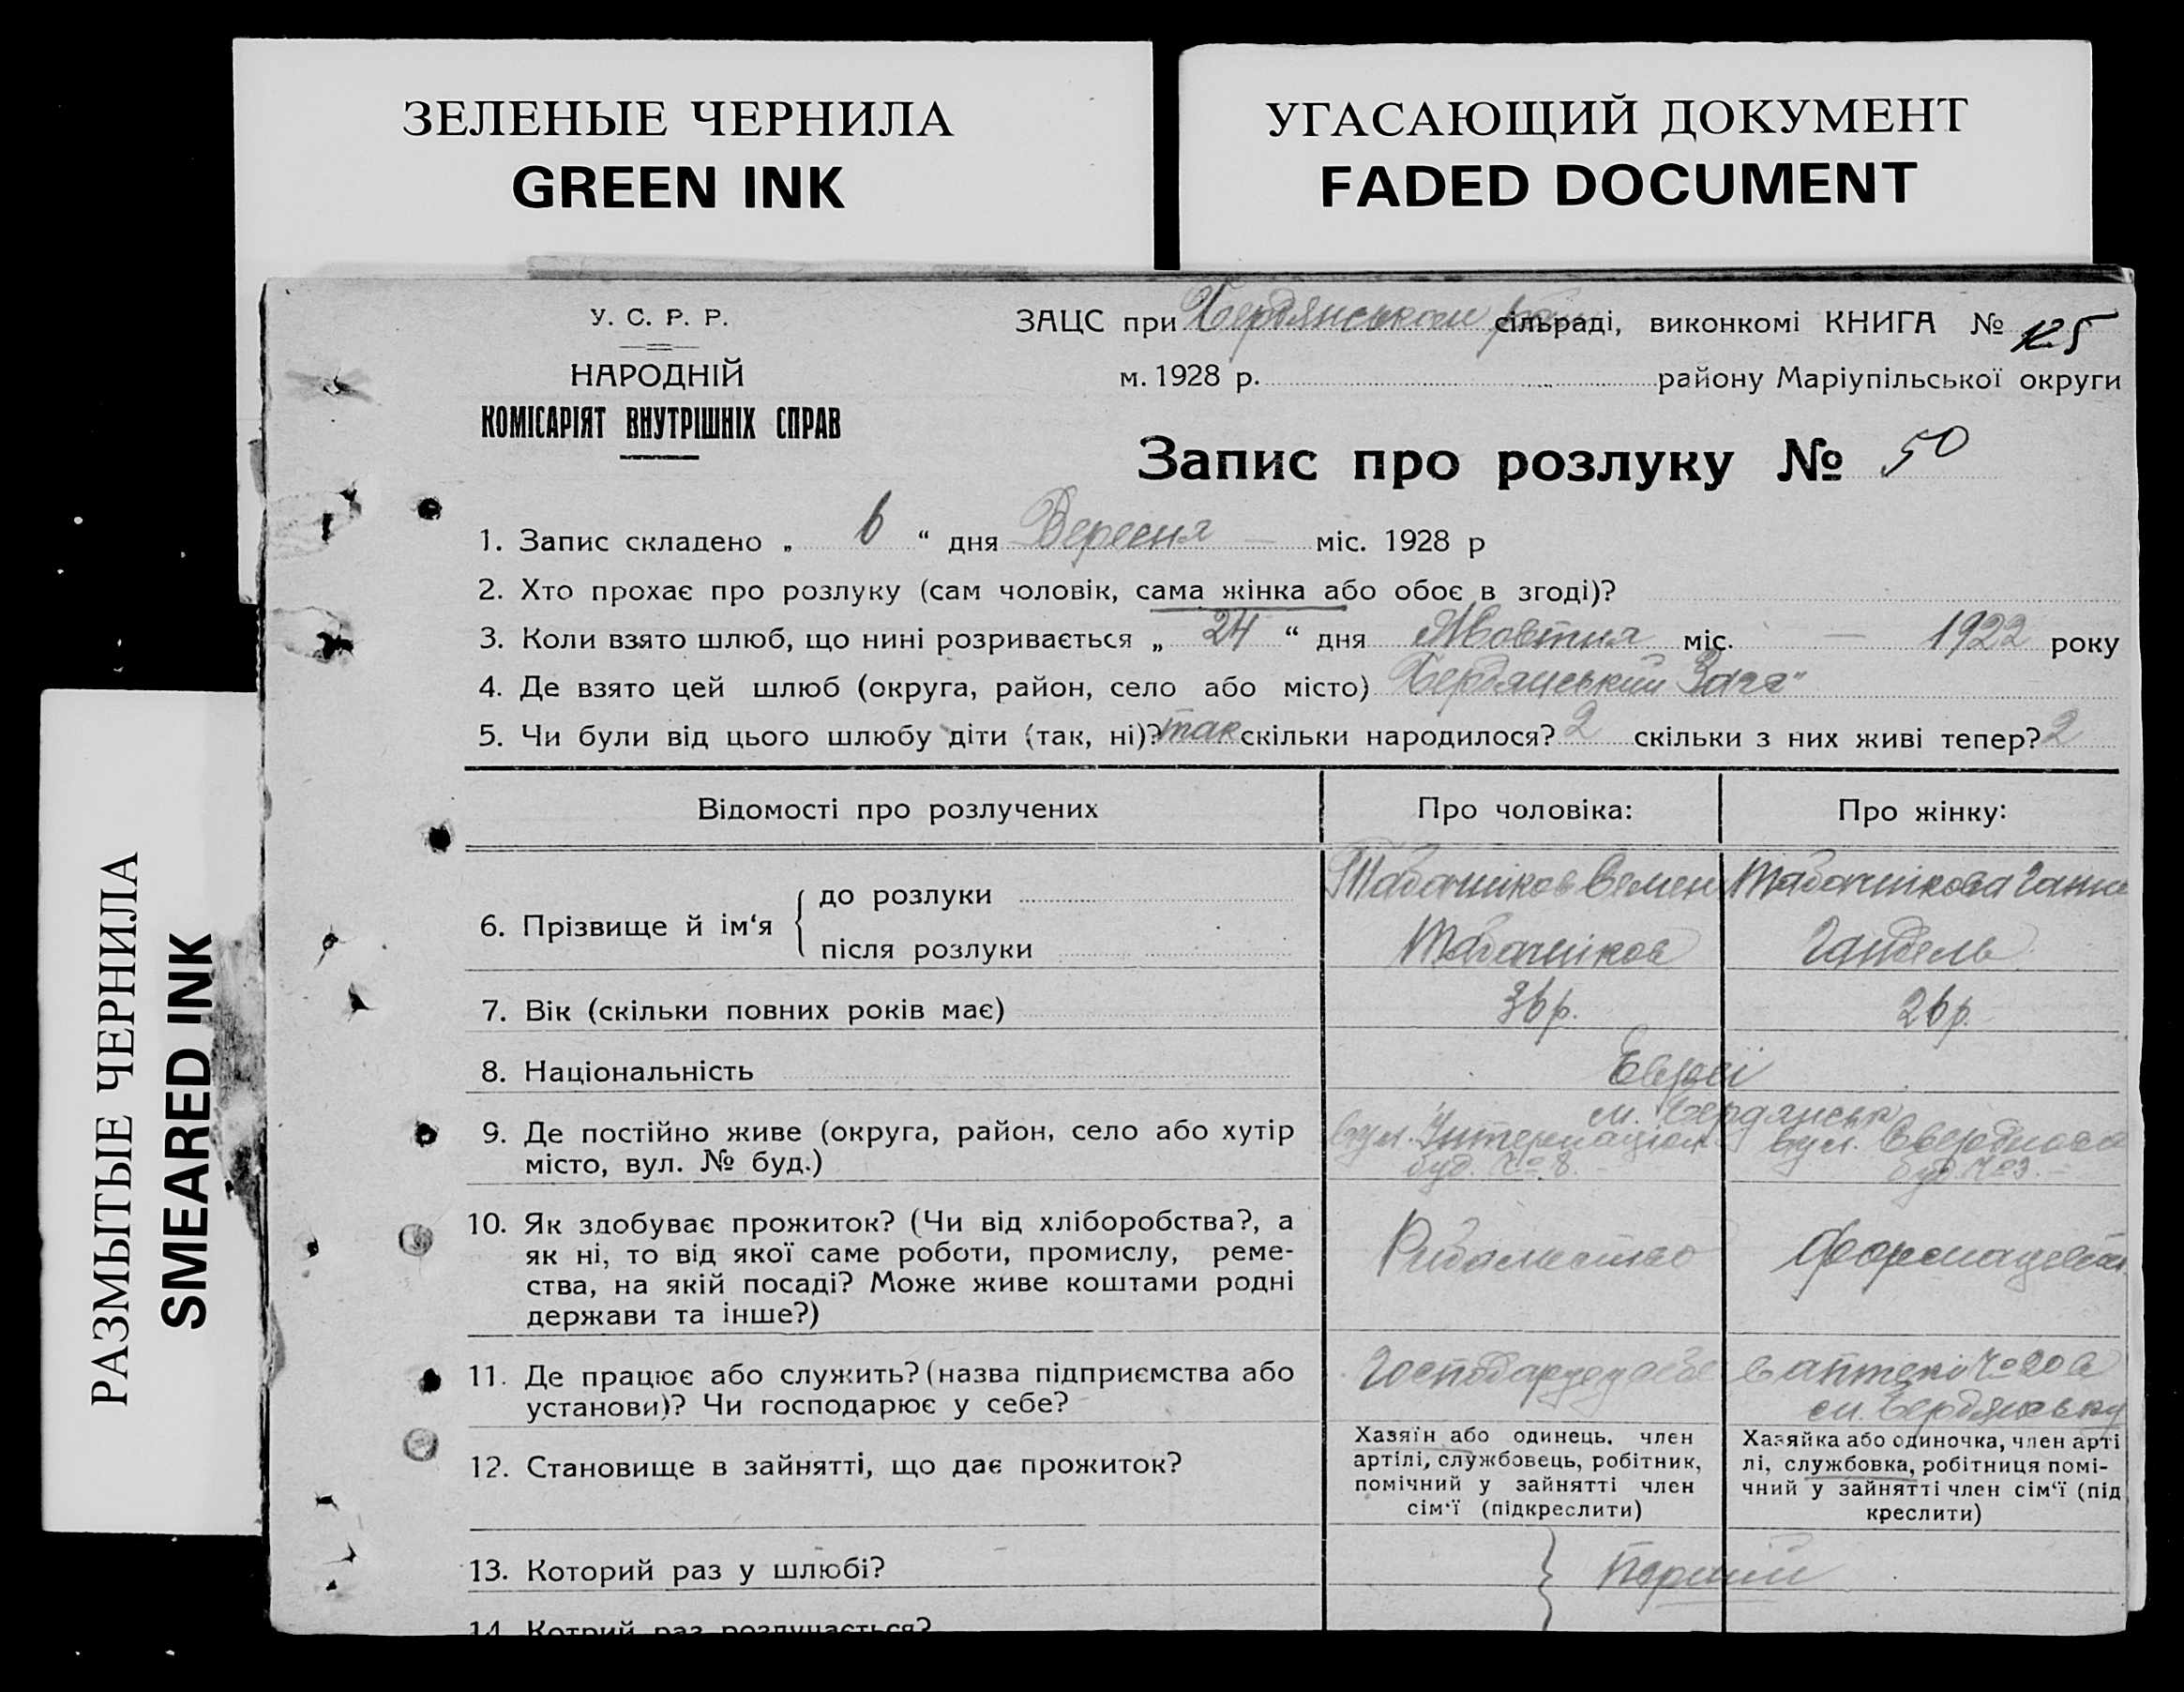 ЗЕЛЕНЫЕ ЧЕРНИЛА
GREEN INK
УГАСАЮЩИЙ ДОКУМЕНТ
FADED DOCUMENT
РАЗМЫТЫЕ ЧЕРНИЛА
SMEARED INK
У. С. Р. Р.
НАРОДНІЙ
КОМІСАРІЯТ ВНУТРІШНІХ СПРАВ
ЗАЦС при Бердянськом сільраді, виконкомі КНИГА № 125
м. 1928 р. району Маріупільської округи
Запис про розлуку № 50
1. Запис складено „ 6 “ дня Вересня міс. 1928 р
2. Хто прохає про розлуку (сам чоловік, сама жінка або обоє в згоді)?
3. Коли взято шлюб, що нині розривається „ 24 “ дня Жовтня міс. 1922 року
4. Де взято цей шлюб (округа, район, село або місто) Бердянський Загс"
5. Чи були від цього шлюбу діти (так, ні)? так скільки народилося? 2 скільки з них живі тепер? 2
Відомості про розлучених
Про чоловіка:
Про жінку:
6. Прізвище й ім‘я
до розлуки
Табачніков Семен
Табачнікова Ганна
після розлуки
Табачніков
Гандель
7. Вік (скільки повних років має)
36 р.
26 р.
8. Національність
Евреї
9. Де постійно живе (округа, район, село або хутір
місто, вул. № буд.)
м. Бердянськ
вул. Інтернаціон
буд. № 8.
вул. Свердлова
буд. № 3.
10. Як здобуває прожиток? (Чи від хліборобства?, а
як ні, то від якої саме роботи, промислу, реме-
ства, на якій посаді? Може живе коштами родні
держави та інше?)
Рибальство
Фармацевт
11. Де працює або служить? (назва підприємства або
установи)? Чи господарює у себе?
Господарує у себе
в аптекі № 20 в
м. Бердянську
12. Становище в зайнятті, що дає прожиток?
Хазяїн або одинець. член
артілі, службовець, робітник,
помічний у зайнятті член
сім‘ї (підкреслити)
Хазяйка або одиночка, член арті
лі, службовка, робітниця помі-
чний у зайнятті член сім‘ї (під
креслити)
13. Которий раз у шлюбі?
Перший
14. Котрий раз розлучається?